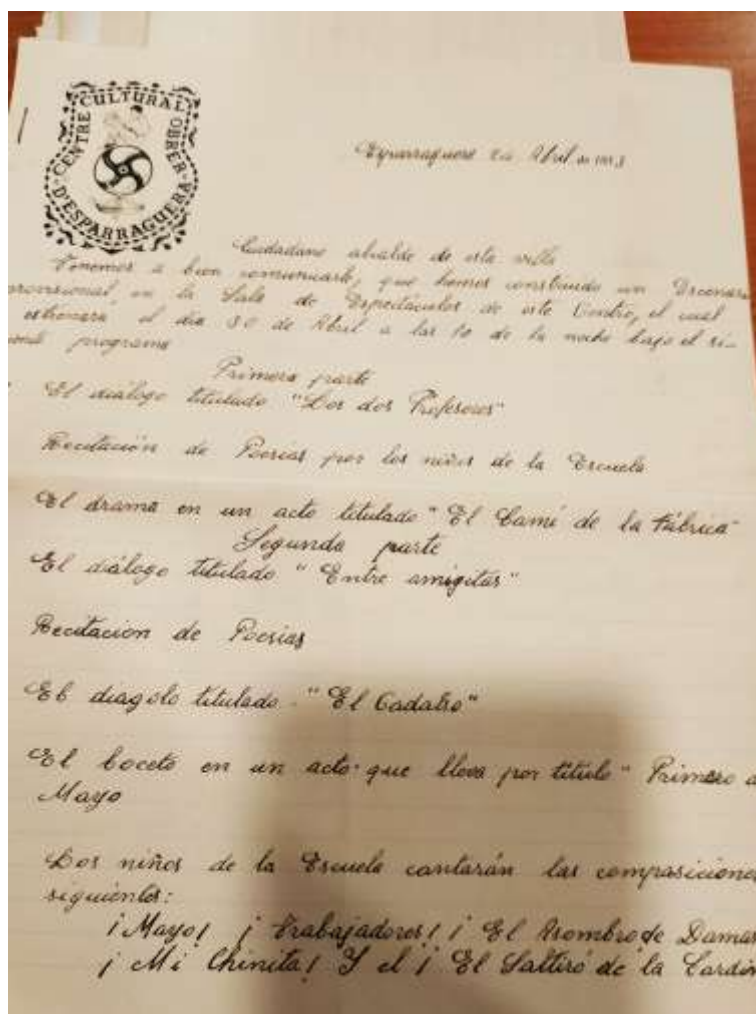 CENTRE CULTURAL OBRER
D'ESPARRAGUERA
Esparraguera 24 Abril de
Ciudadano alcalde de esta villa
Tenemos a bien comunicarle, que hemos construido un Escenario
provisional, en la Sala de Espectáculos de este Centro, el cual
estrenara el dia 30 de Abril a las 10 de la noche bajo el si-
programa
Primera parte
El diálogo titulado "Los dos Profesores"
Recitación de Poesías por los niños de la Escuela
El drama en un acto titulado "El Camí de la Fábrica"
Segunda parte
El diálogo titulado "Entre amigitas"
Recitacion de Poesias
El diagolo titulado "El Cadalso"
El boceto en un acto que lleva por titulo "Primero d
Mayo
Los niños de la Escuela cantarán las composiciones
siguientes:
¡Mayo! ¡Trabajadores! ¡El Asombro de Damas
¡Mi Chinita! Y el ¡El Saltiró de la Cardin